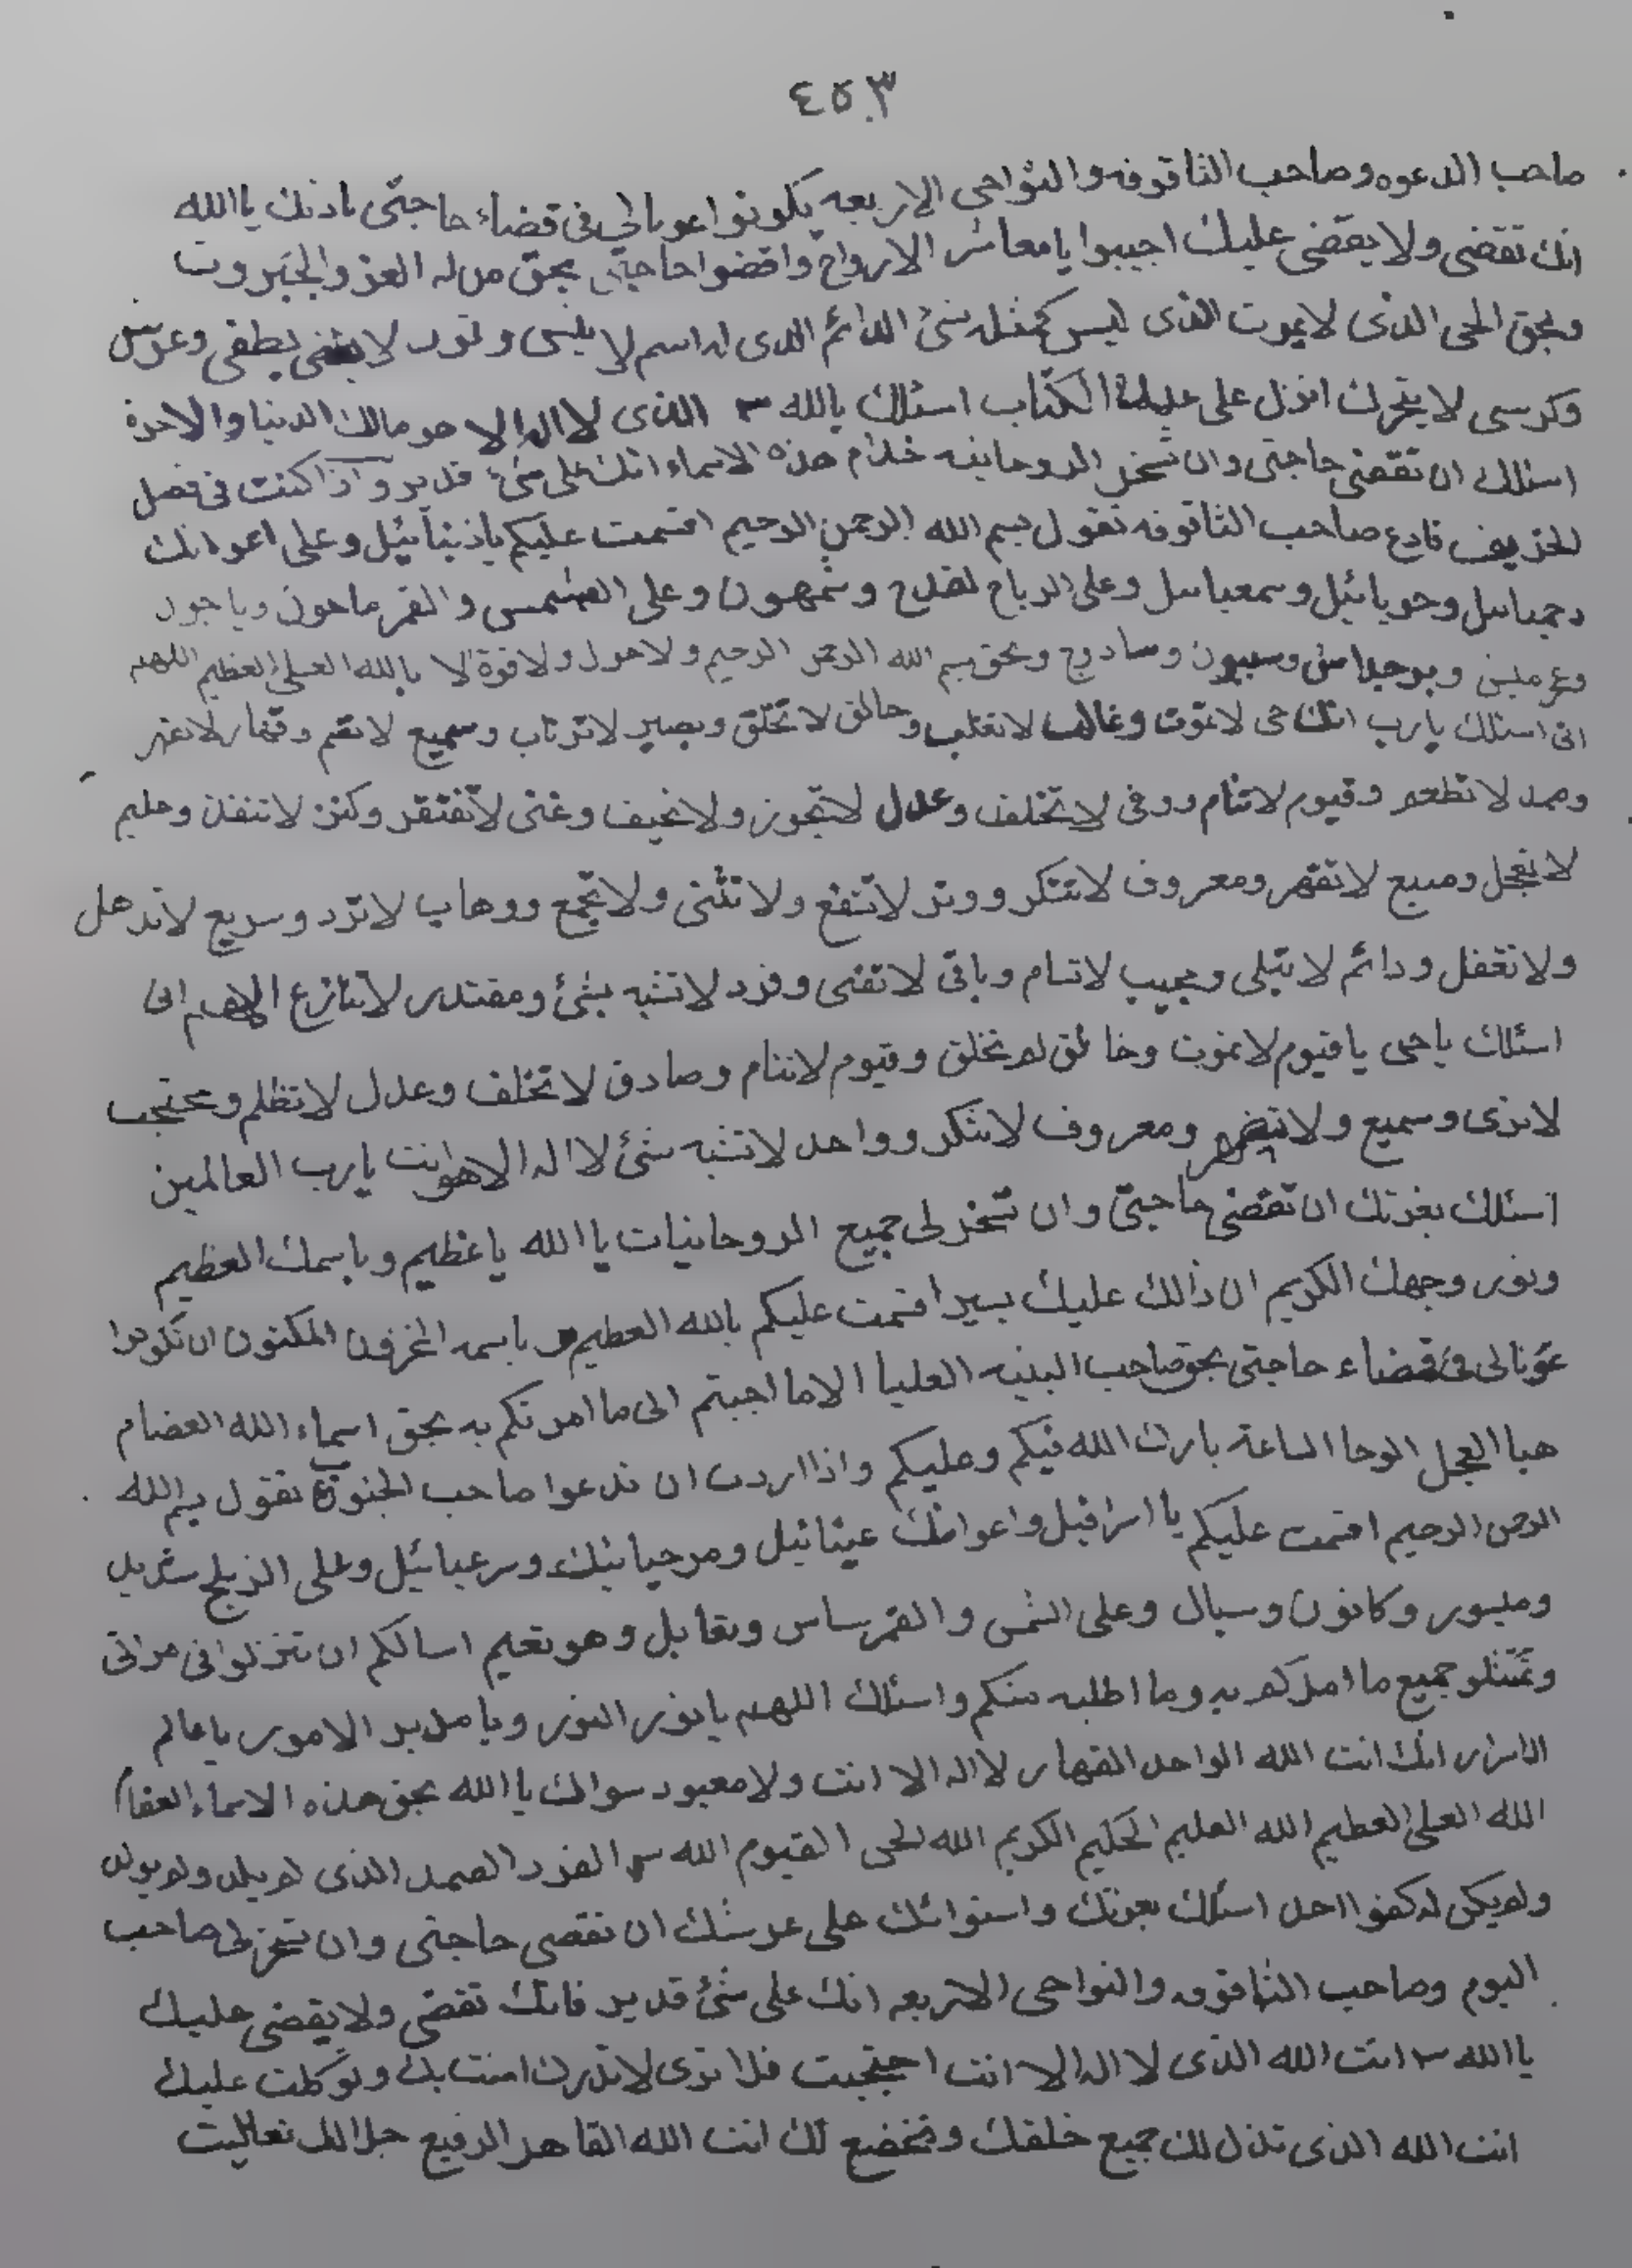 ٤٥٣
صاحب الدعوه وصاحب الثاقوفه والنواحى الاربعه يكونوا عونا لى فى قضاء حاجتى باذنك يا الله
انك تقضى ولا يقضى عليك اجيبوا يا معاشر الارواح واقضوا حاجتى بحق من له العز والجبروت
وبحق الحى الذى لا يموت الذى ليس كمثله شئ الدائم الذى له اسم لا ينسى ونور لا يطفى وعرش
وكرسى لا يتحرك انزل على الكتاب اسئلك يالله ٣ الذى لا اله الا هو مالك الدنيا والاخرة
اسئلك ان تقضى حاجتى وان تسخر الروحانيه خدام هذه الاسماء انك على شئ قدير واذا كنت فى فصل
الخريف فادع صاحب الثاقوفه تقول بسم الله الرحمن الرحيم اقسمت عليكم ياذنيائيل وعلى اعوانك
وحويائيل وعلى الرباح وشمهون وعلى الشمس والقمر ماحون وياحور
وبحق بسم الله الرحمن الرحيم ولا حول ولا قوة الا بالله العلى العظيم اللهم
انى اسئلك يارب انك حى لا تموت وغالب لا تغلب وخالق لا تخلق وبصير لا ترتاب وسميع لا وقهار لا تقهر
وصمد لا تطعم وقيوم لا تنام ووفى لا تخلف وعدل لا تجوز ولا تحيف وغنى لا تفتقر وكنز لا تنفذ وحليم
لا تعجل ومنيع لا تقهر ومعروف لا تنكر ووتر لا تشفع ولا تثنى ولا تجمع ووهاب لا ترد وسريع لا تذهل
ولا تغفل ودائم لا تبلى ومجيب لا تسام وباقى لا تفنى وفرد لا تشبه بشئ ومقتدر لا تنازع اللهم انى
اسئلك ياحى يا قيوم لا تموت وخالق لم تخلق وقيوم لا تنام وصادق لا تخلف وعدل لا تظلم ومحتجب
لا ترى وسميع ولا ومعروف لا تنكر وواحد لا تشبه شئ لا اله الا انت يارب العالمين
اسئلك بعزتك ان تقضى حاجتى وان تسخر لى جميع الروحانيات يا الله يا عظيم وباسمك العظيم
ونور وجهك الكريم ان ذالك عليك يسير اقسمت عليكم بالله العظيم وباسمه المخزون المكنون ان تكونوا
عونا لى فى قضاء حاجتى بحق صاحب البنيه العليا الا ما اجبتم الى ما امرتكم به بحق اسماء الله العضام
هيا العجل الوحا الساعة بارك الله فيكم وعليكم واذا اردت ان تدعوا صاحب تقول بسم الله
الرحمن الرحيم اقسمت عليكم يا اسرافيل واعوانك عينائيل ومرحيائيك وسرعيائيل وعلى
وميسور وكانون وسيال وعلى الشمس والقمر ساس وهو نعيم اسالكم ان تنزلوا فى مراتى
وتمثلو جميع ما امركم به وما اطلبه منكم واسئلك اللهم يا نور النور ويا مدبر الامور يا عالم
الاسرار انك انت الله الواحد القهار لا اله الا انت ولا معبود سواك يا الله بحق هذه الاسماء
الله العلى العظيم الله العليم الحكيم الكريم الله الحى القيوم الله ٣ الفرد الصمد الذى لم يلد ولم يولد
ولم يكن له كفوا احد اسئلك بعزتك واستوائك على عرشك ان تقضى حاجتى وان تسخر لى صاحب
اليوم وصاحب الثاقوفه والنواحى الاربعه انك على شئ قدير فانك تقضى ولا يقضى عليك
يا الله ٣ انت الله الذى لا اله الا انت احتجبت فلا ترى لا تدرك امنت بك وتوكلت عليك
انت الله الذى تذل لك جميع خلقك وتخضع لك انت الله القاهر الرفيع جلالك تعاليت